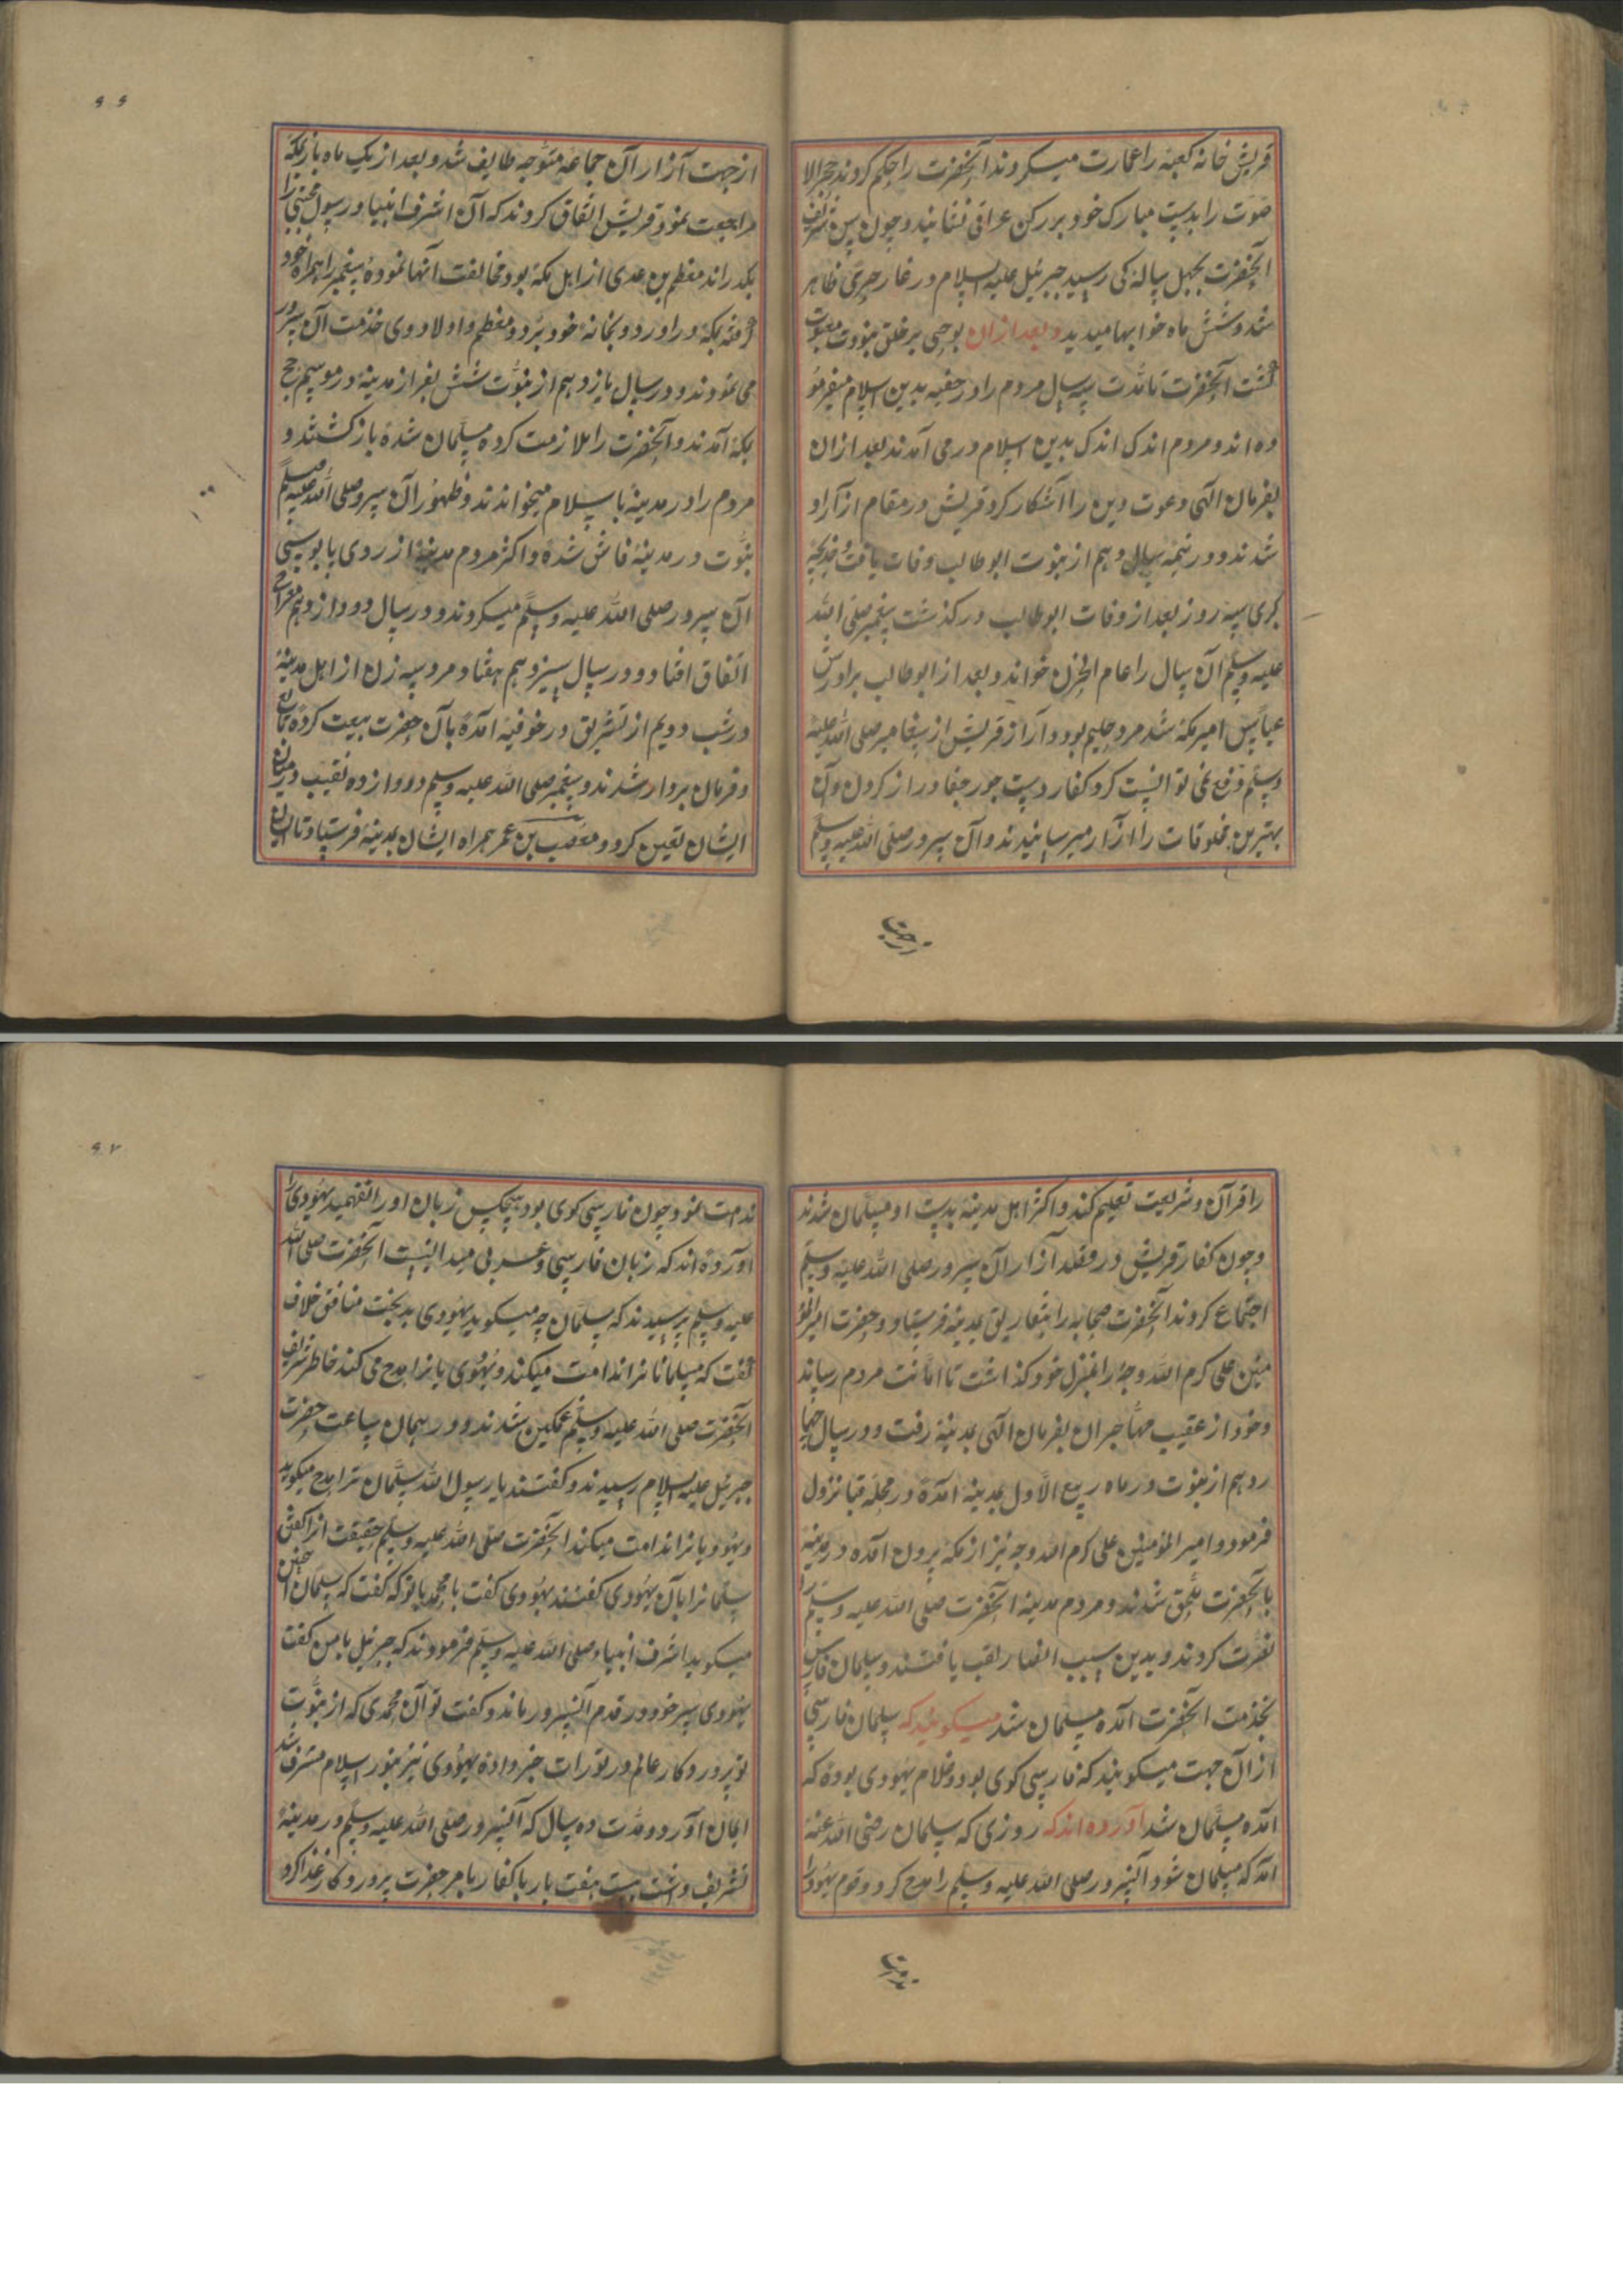 قریش خانه کعبه را عمارت میکردند آنحضرت را حکم کردند حجر الا
سود را بدست مبارک خود بر رکن عراقی نشانید و چون سن شریف
آنحضرت بچهل سالگی رسید جبرئیل علیه السلام در غار حری ظاهر
شد و شش ماه خوابها میدید و بعد از ان بوحی بر خلق نبوت مبعوث
گشت آنحضرت تا مدت سه سال مردم را در خفیه بدین اسلام میفرمو
ده اند و مردم اندک اندک بدین اسلام در می آمدند بعد از ان
بفرمان الهی دعوت دین را آشکار کرد قریش در مقام ازار او
شدند و در نیمه سال دهم از نبوت ابو طالب وفات یافت و خدیجه
کبری سه روز بعد از وفات ابو طالب درگذشت پیغمبر صلی الله
علیه وسلم آن سال را عام الحزن خواند و بعد از ابو طالب برادرش
عباس امیر مکه شد مرد حلیم بود و آزار قریش از پیغامبر صلی الله علیه
وسلم دفع نمی توانست کرد کفار دست جور جفا دراز کردن و آن
بهترین مخلوقات را ازار میرسانیدند و آن سرور صلی الله علیه وسلم
از جهت
۶۶
از جهت آزار آن جماعه متوجه طایف شد و بعد از یک ماه باز بمکه
مراجعت نمود قریش اتفاق کردند که آن اشرف انبیا و رسول مجتبی را
بکدراند مطعم بن عدی از اهل مکه بود مخالفت آنها نموده پیغمبر را همراه خود
گرفته بمکه در اورد و بخانه خود برد و مطعم و اولاد وی خدمت آن سرور
می نمودند و در سال یازدهم از نبوت شش نفر از مدینه در موسم حج
بمکه آمدند و آنحضرت را ملازمت کرده مسلمان شده بازگشتند و
مردم را در مدینه باسلام میخواندند و ظهور آن سرور صلی الله علیه وسلم
نبوت در مدینه فاش شده و اکثر مردم مدینه از روی پابوسی
آن سرور صلی الله علیه وسلم میکردند و در سال دوازدهم معراج
اتفاق افتاد و در سال سیزدهم هفتاد مرد و سه زن از اهل مدینه
در شب دویم از تشریق در خوفیه آمده بآن حضرت بیعت کرده
و فرمان بردار شدند و پیغمبر صلی الله علیه وسلم دوازده نقیب در میان
ایشان تعین کرد و مصعب بن عمر همراه ایشان بمدینه فرستاد تا ایشان
را قرآن و شریعت تعلیم کند و اکثر اهل مدینه بدست او مسلمان شدند
و چون کفار قریش در قصد آزار آن سرور صلی الله علیه وسلم
اجتماع کردند آنحضرت صحابه را بتفاریق بمدینه فرستاد و حضرت امیر المو
منین علی کرم الله وجه را بمنزل خود گذاشت تا امانت مردم رساند
و خود از عقیب مهاجران بفرمان الهی بمدینه رفت و در سال چها
ردهم از نبوت در ماه ربیع الاول بمدینه آمده در محله قبا نزول
فرمود و امیر المؤمنین علی کرم الله وجه نیز از مکه برون آمده در مدینه
بآنحضرت ملحق شدند و مردم مدینه آنحضرت صلی الله علیه وسلم را
نصرت کردند و بدین سبب انصار لقب یافتند و سلمان فارسی
بخدمت آنحضرت آمده مسلمان شد میکویند که سلمان فارسی
از آن جهت میکویند که فارسی کوی بود و غلام یهودی بوده که
آمده مسلمان شد آورده اند که روزی که سلمان رضی الله عنه
آمد که مسلمان شود آنسرور صلی الله علیه وسلم را مدح کرد و قوم یهود را
۶۷
ندمت نمود چون فارسی کوی بود هیچکس زبان او را نفهمید یهودی را
آورده اند که زبان فارسی و عربی میدانست آنحضرت صلی الله
علیه وسلم پرسیدند که سلمان چه میکوید یهودی بدبخت منافق خلاف
گفت که مسلمانانرا ندامت میکند و یهودی یانرا مدح می کند خاطر شریف
آنحضرت صلی الله علیه وسلم غمکین شدند و در همان ساعت حضرت
جبرئیل علیه السلام رسیدند و گفتند یا رسول الله سلمان ترا مدح میکوید
و یهود یانرا ندامت میکند آنحضرت صلی الله علیه وسلم حقیقت
سلمانرا بآن یهودی گفتند یهودی گفت یا محمد باتو که گفت که سلمان چنین
میکوید اشرف انبیا صلی الله علیه وسلم فرمودند که جبرئیل بامن گفت
یهودی سر خود در قدم آنسرور ماند و گفت تو آن محمدی که از نبوت
تو پروردکار عالم در تورات خبر داده یهودی نیز بنور اسلام مشرف شد
ایمان آورد و مدت ده سال که آنسرور صلی الله علیه وسلم در مدینه
تشریف داشت بیست هفت بار با کفار بامر حضرت پروردکار غذا کرد